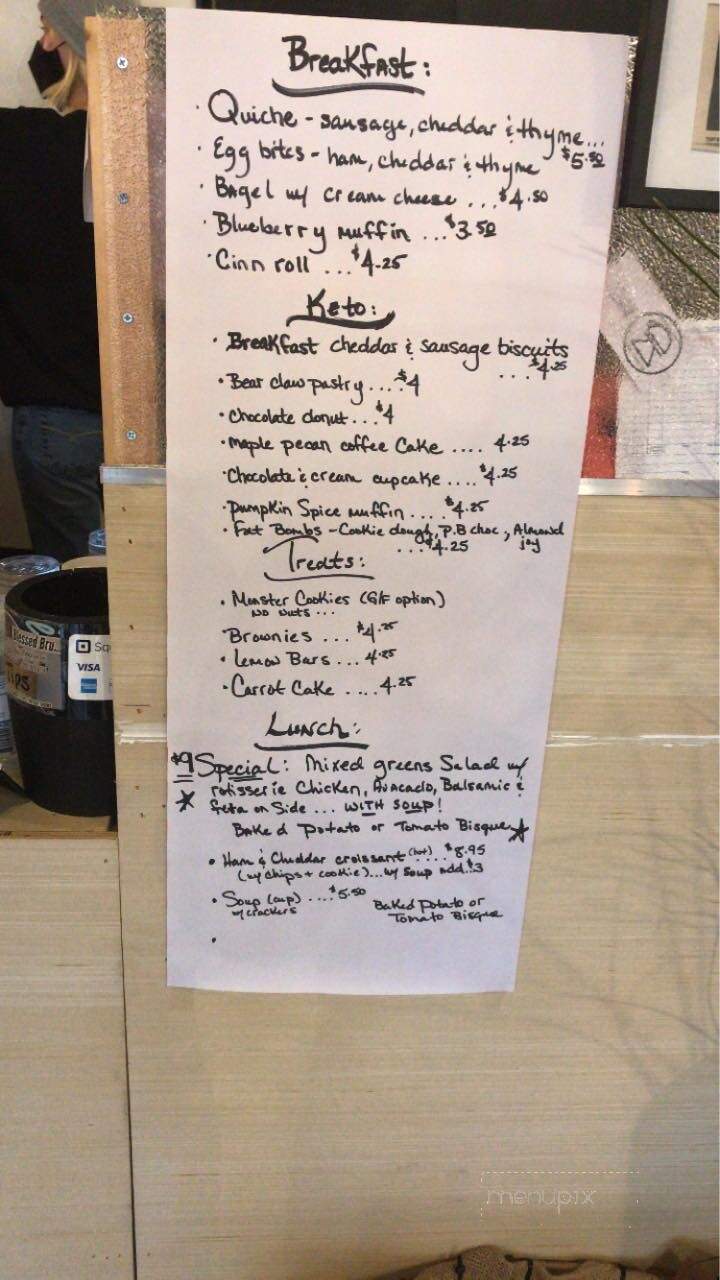 Breakfast:
· Quiche - sausage, cheddar & thyme...
$5.50
· Egg bites - ham, cheddar & thyme
· Bagel w/ cream cheese ... $4.50
· Blueberry muffin ... $3.50
· Cinn roll ... $4.25
Keto:
· Breakfast cheddar & sausage biscuits
... $4.25
· Bear claw pastry .... $4
· Chocolate donut ... $4
· Maple pecan coffee cake .... 4.25
· Chocolate & cream cupcake .... $4.25
· Pumpkin Spice muffin .... $4.25
· Fat Bombs - Cookie dough, P.B choc, Almond
joy
... $4.25
Treats:
· Monster Cookies (G/F option)
NO NUTS ...
Brownies ... $4.25
· Lemon Bars ... 4.25
· Carrot Cake .... 4.25
Lunch:
$9 Special: Mixed greens Salad w/
rotisserie Chicken, Avacado, Balsamic &
feta on Side ... WITH SOUP!
Baked Potato or Tomato Bisque
· Ham & Cheddar croissant (hot) .... $8.95
(w/ chips + cookie) ... w/ Soup add $3
· Soup (cup) .... $5.50
w/ crackers
Baked Potato or
Tomato Bisque
Blessed Bru...
TIPS
Sq
VISA
menupix